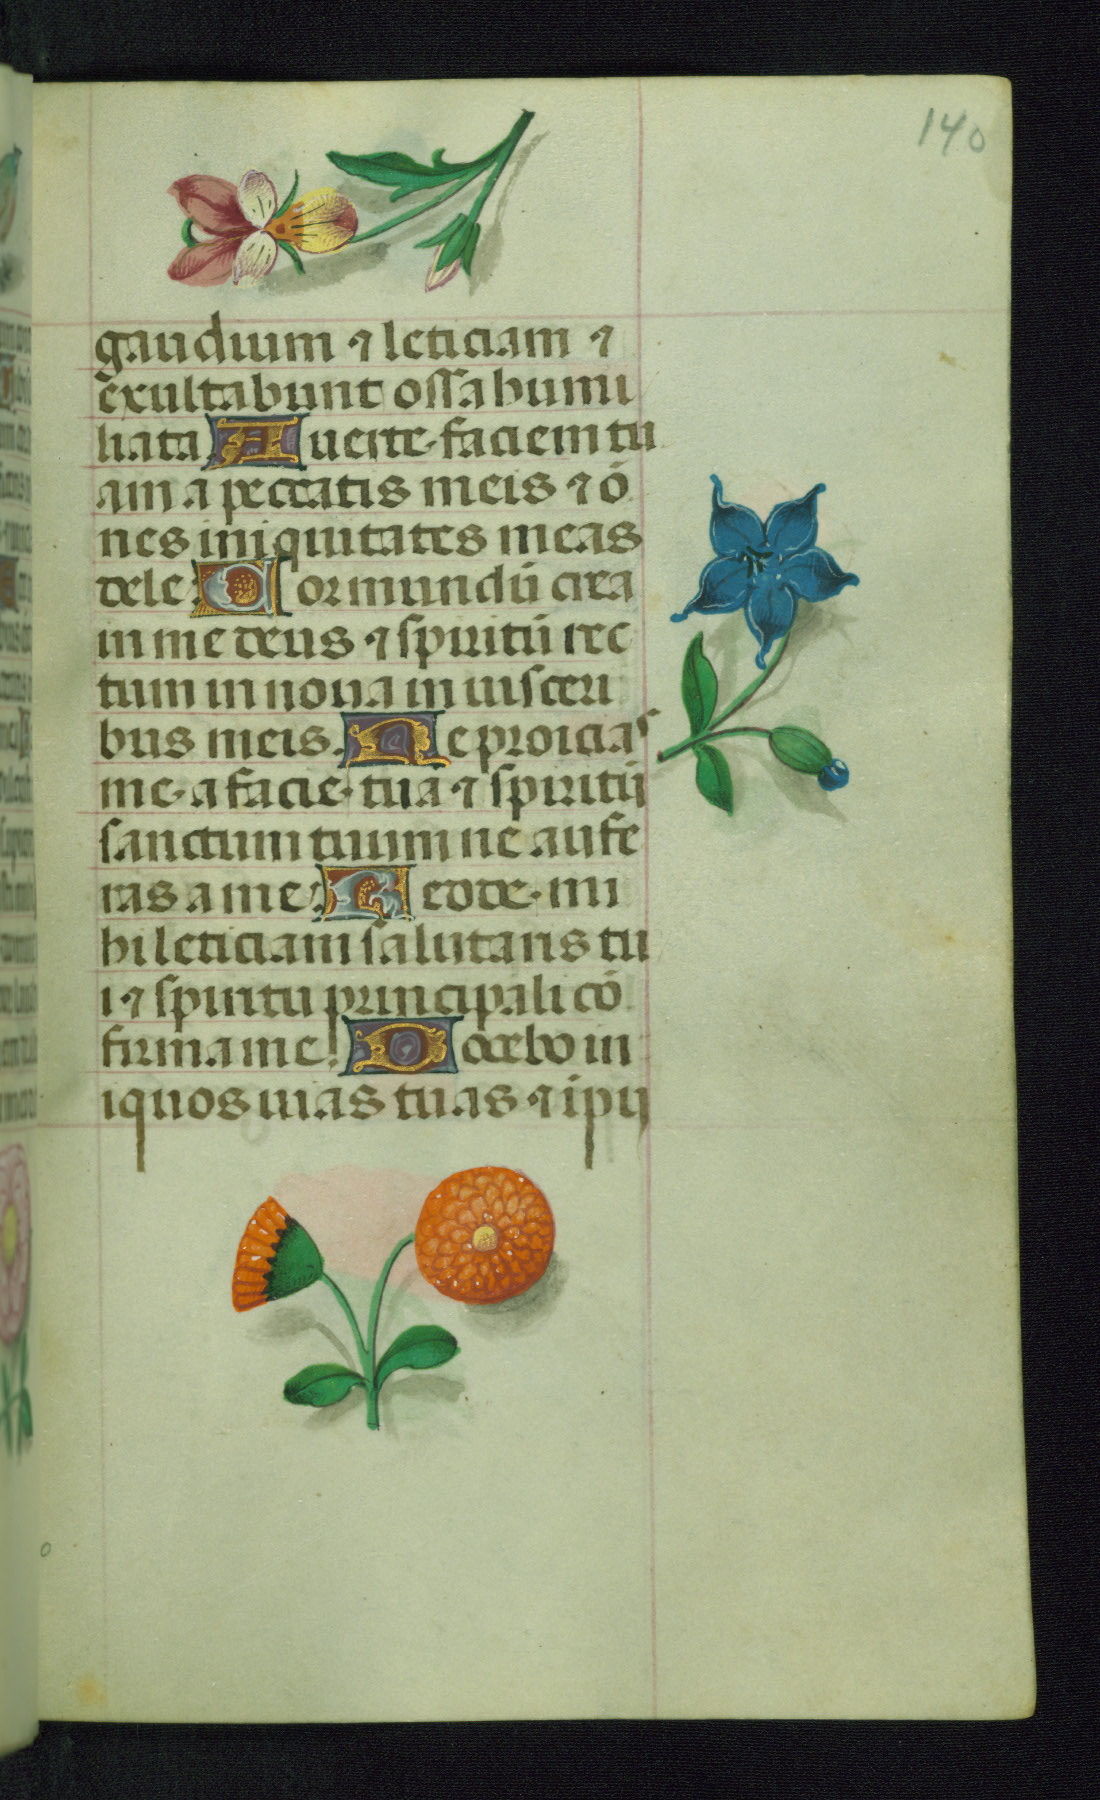 140
gaudium ⁊ leticiam ⁊
exultabunt ossa humi
liata Auerte faciem tu
am a peccatis meis ⁊ ō
nes iniquitates meas
dele Cor mundū crea
in me deus ⁊ spiritū rec
tum in noua in uisceri
bus meis. Ne proicias
me a facie tua ⁊ spiritū
sanctum tuum ne aufe
ras a me. Redde mi
hi leticiam salutaris tu
i ⁊ spiritu principali cō
firma me. Docebo in
iquos uias tuas ⁊ ipii